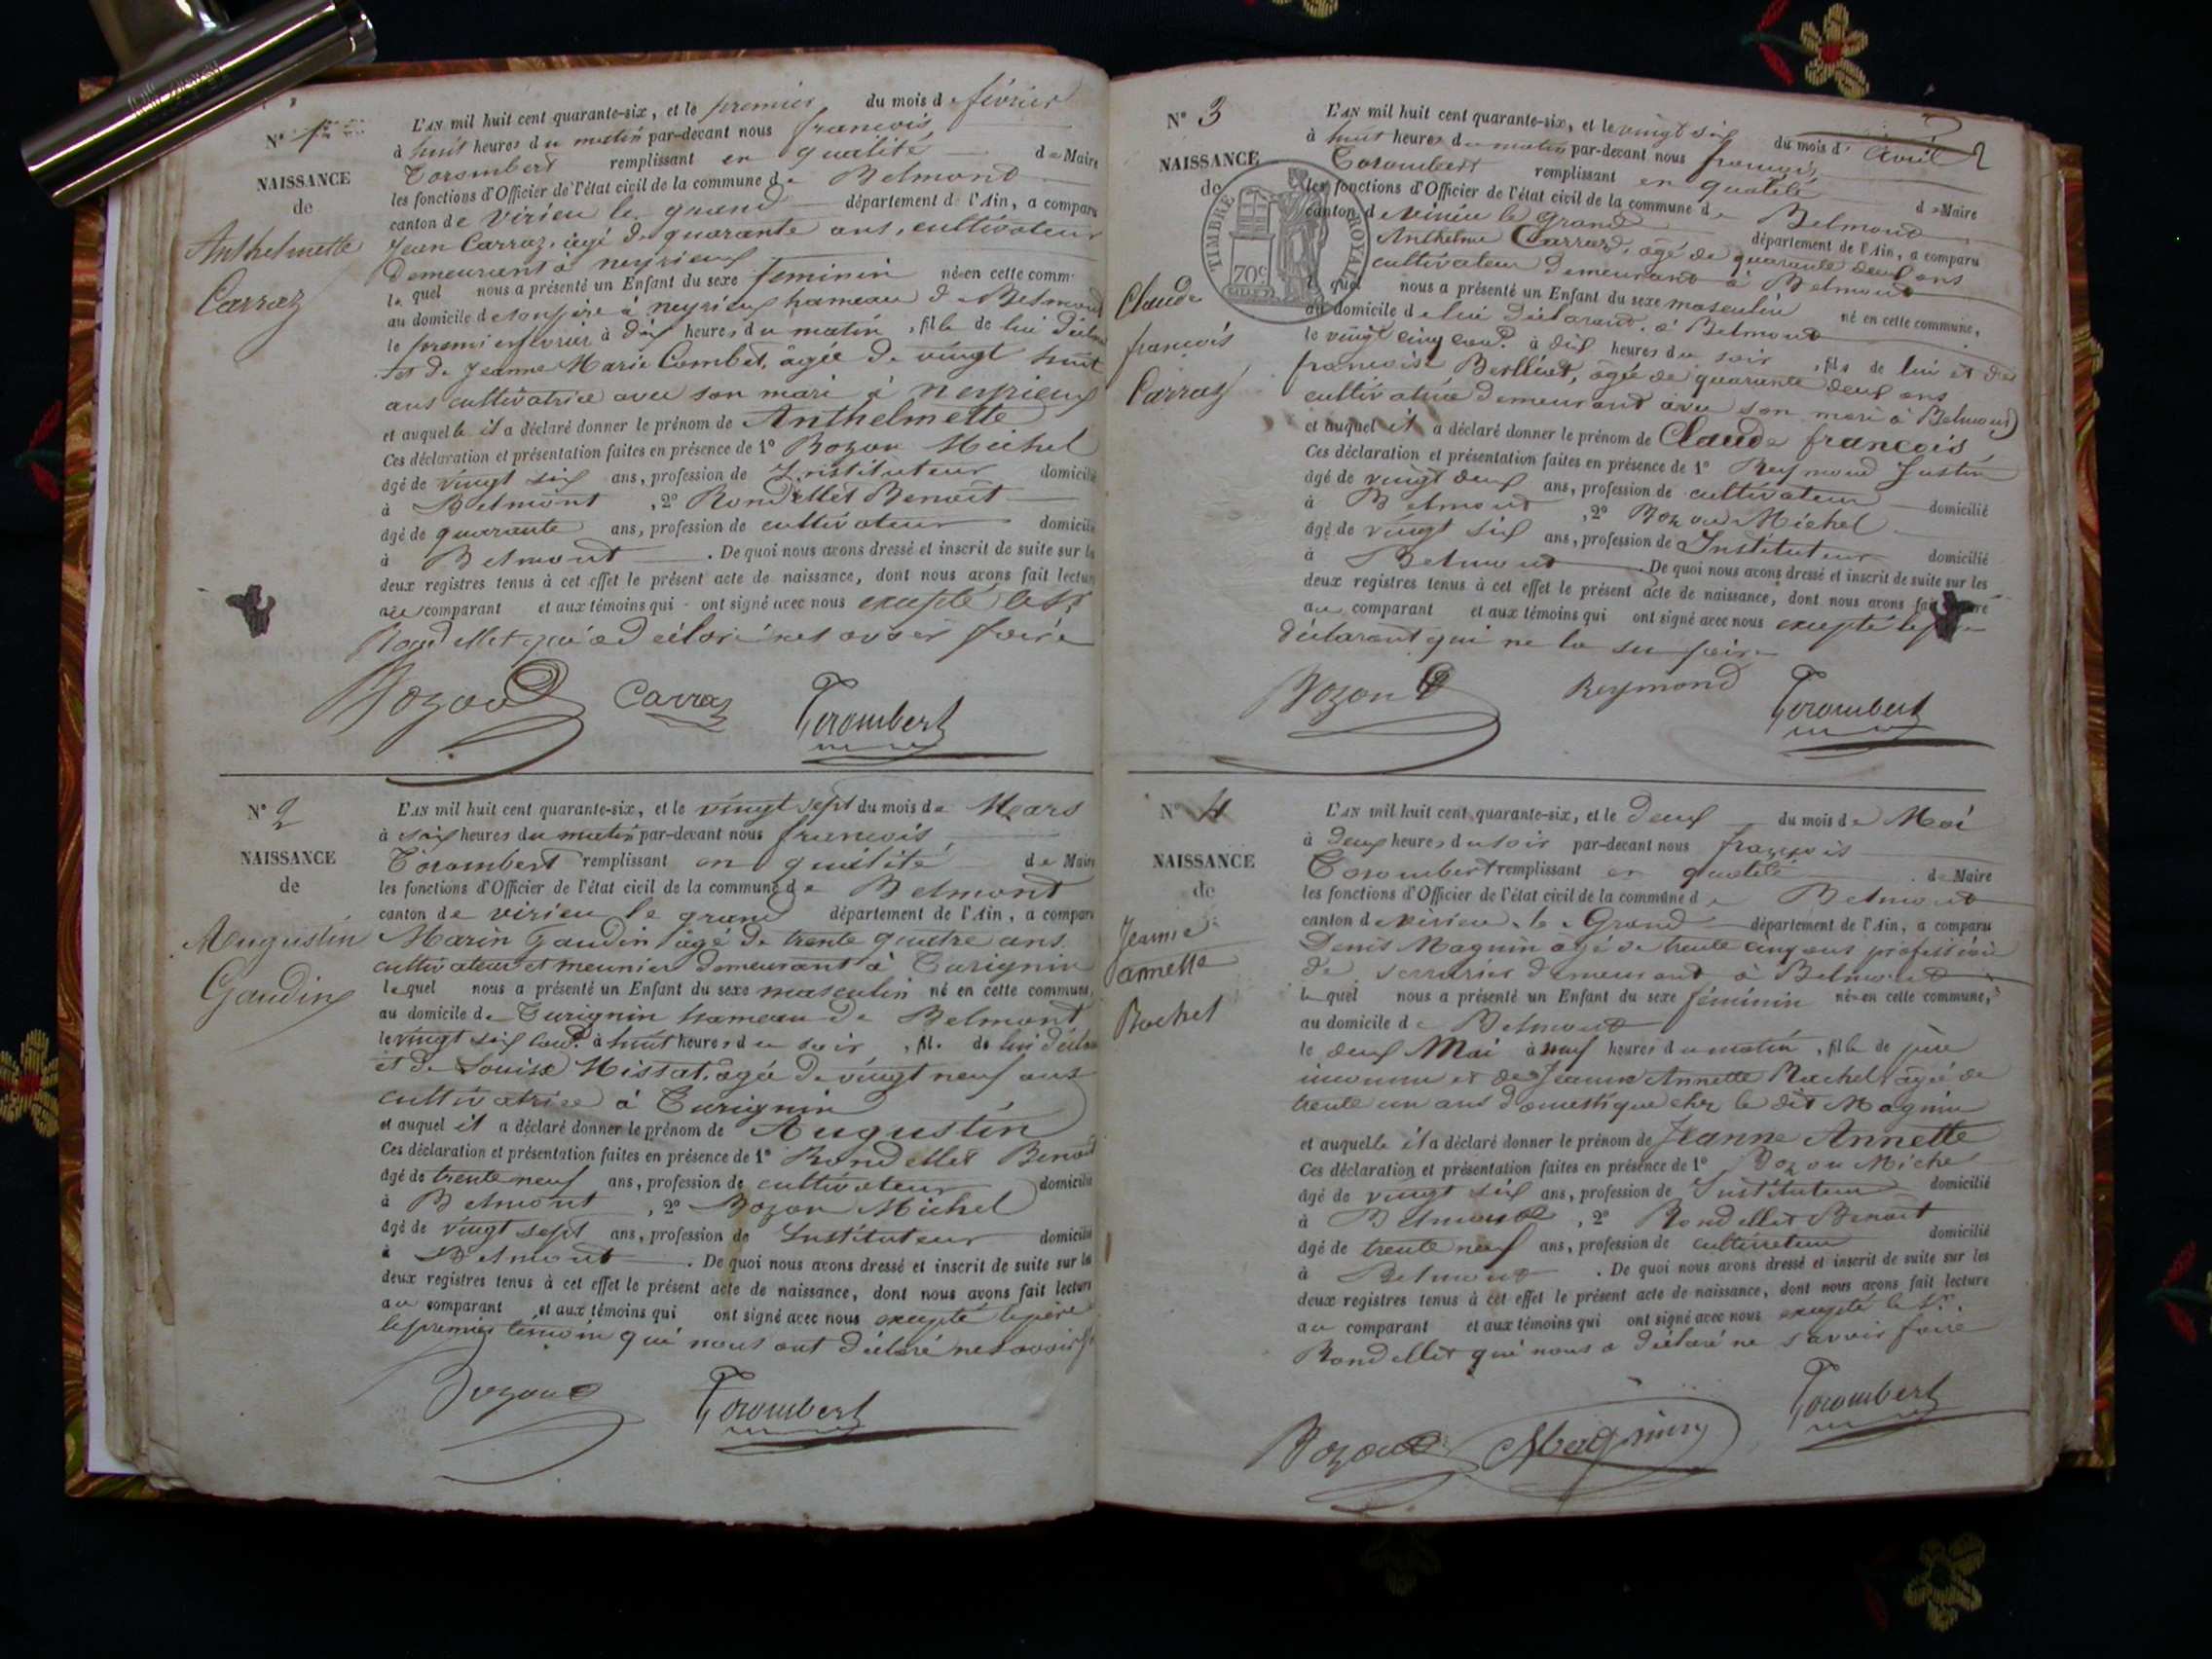 N° 1
NAISSANCE
de
Anthelmette
Carraz
L'AN mil huit cent quarante-six, et le premier du mois de février
à huit heures du matin par-devant nous françois
Torombert remplissant en qualité de Maire
les fonctions d'Officier de l'état civil de la commune de Belmont
canton de virieu le grand département de l'Ain, a comparu
Jean Carraz, âgé de quarante ans, cultivateur
demeurant à neyrieux
le quel nous a présenté un Enfant du sexe feminin né en cette comm
au domicile de son père à neyrieux hameau de Belmont
le premier fevrier à dix heures du matin, fille de lui déclar
et de Jeanne Marie Combet, âgée de vingt huit
ans cultivatrice avec son mari à neyrieux
et auquelle il a déclaré donner le prénom de Anthelmette
Ces déclaration et présentation faites en présence de 1° Bozon Michel
âgé de vingt six ans, profession de Instituteur domicilié
à Belmont, 2° Rondellet Benoit
âgé de quarante ans, profession de cultivateur domicilié
à Belmont. De quoi nous avons dressé et inscrit de suite sur les
deux registres tenus à cet effet le présent acte de naissance, dont nous avons fait lecture
au comparant et aux témoins qui ont signé avec nous excepté le Sr
Rondellet qui a déclaré ne savoir faire
Bozon Carraz Torombert
N° 2
NAISSANCE
de
Augustin
Gaudin
L'AN mil huit cent quarante-six, et le vingt sept du mois de Mars
à six heures du matin par-devant nous francois
Torombert remplissant en qualité de Maire
les fonctions d'Officier de l'état civil de la commune de Belmont
canton de virieu le grand département de l'Ain, a comparu
Marin Gaudin âgé de trente quatre ans
cultivateur et meunier demeurant à Turignin
le quel nous a présenté un Enfant du sexe masculin né en cette commune,
au domicile de Turignin hameau de Belmont
le vingt six cour.t à huit heures du soir, fils de lui déclar
et de Louise Mistat, âgée de vingt neuf ans
cultivatrice à Turignin
et auquel il a déclaré donner le prénom de Augustin
Ces déclaration et présentation faites en présence de 1° Rondellet Benoit
âgé de trente neuf ans, profession de cultivateur domicilié
à Belmont, 2° Bozon Michel
âgé de vingt sept ans, profession de Instituteur domicilié
à Belmont. De quoi nous avons dressé et inscrit de suite sur les
deux registres tenus à cet effet le présent acte de naissance, dont nous avons fait lecture
au comparant et aux témoins qui ont signé avec nous excepté le père
le premier témoin qui nous ont déclaré ne savoir
Bozon Torombert
N° 3
NAISSANCE
de
TIMBRE ROYAL
70c
Claude
françois
Carraz
2
L'AN mil huit cent quarante-six, et le vingt six du mois d'Avril
à huit heures du matin par-devant nous françois
Torombert remplissant en qualité de Maire
les fonctions d'Officier de l'état civil de la commune de Belmont
canton de virieu le Grand département de l'Ain, a comparu
Anthelme Carraz, âgé de quarante deux ans
cultivateur demeurant à Belmont
le quel nous a présenté un Enfant du sexe masculin né en cette commune,
au domicile de lui déclarant, à Belmont
le vingt cinq cour.t à dix heures du soir, fils de lui et de
françoise Berlliet, âgée de quarante deux ans
cultivatrice demeurant avec son mari à Belmont
et auquel il a déclaré donner le prénom de Claude françois
Ces déclaration et présentation faites en présence de 1° Reymond Justin
âgé de vingt deux ans, profession de cultivateur domicilié
à Belmont, 2° Bozon Michel
âgé de vingt six ans, profession de Instituteur domicilié
à Belmont De quoi nous avons dressé et inscrit de suite sur les
deux registres tenus à cet effet le présent acte de naissance, dont nous avons fait
au comparant et aux témoins qui ont signé avec nous excepté le
déclarant qui ne la su faire
Bozon Reymond Torombert
N° 4
NAISSANCE
de
Jeanne
annette
Rochet
L'AN mil huit cent quarante-six, et le deux du mois de Mai
à deux heures du soir par-devant nous françois
Torombert remplissant en qualité de Maire
les fonctions d'Officier de l'état civil de la commune de Belmont
canton de virieu le Grand département de l'Ain, a comparu
Denis Magnin âgé de trente cinq ans profession
de serrurier demeurant à Belmont
le quel nous a présenté un Enfant du sexe féminin né en cette commune,
au domicile de Belmont
le deux Mai à neuf heures du matin, fille de père
inconnu et de Jeanne Annette Rochet âgée de
trente un ans domestique chez le dit Magnin
et auquelle il a déclaré donner le prénom de Jeanne Annette
Ces déclaration et présentation faites en présence de 1° Bozon Michel
âgé de vingt six ans, profession de Instituteur domicilié
à Belmont, 2° Rondellet Benoit
âgé de trente neuf ans, profession de cultivateur domicilié
à Belmont. De quoi nous avons dressé et inscrit de suite sur les
deux registres tenus à cet effet le présent acte de naissance, dont nous avons fait lecture
au comparant et aux témoins qui ont signé avec nous excepté le Sr.
Rondellet qui nous a déclaré ne savoir faire
Bozon Magnin Torombert